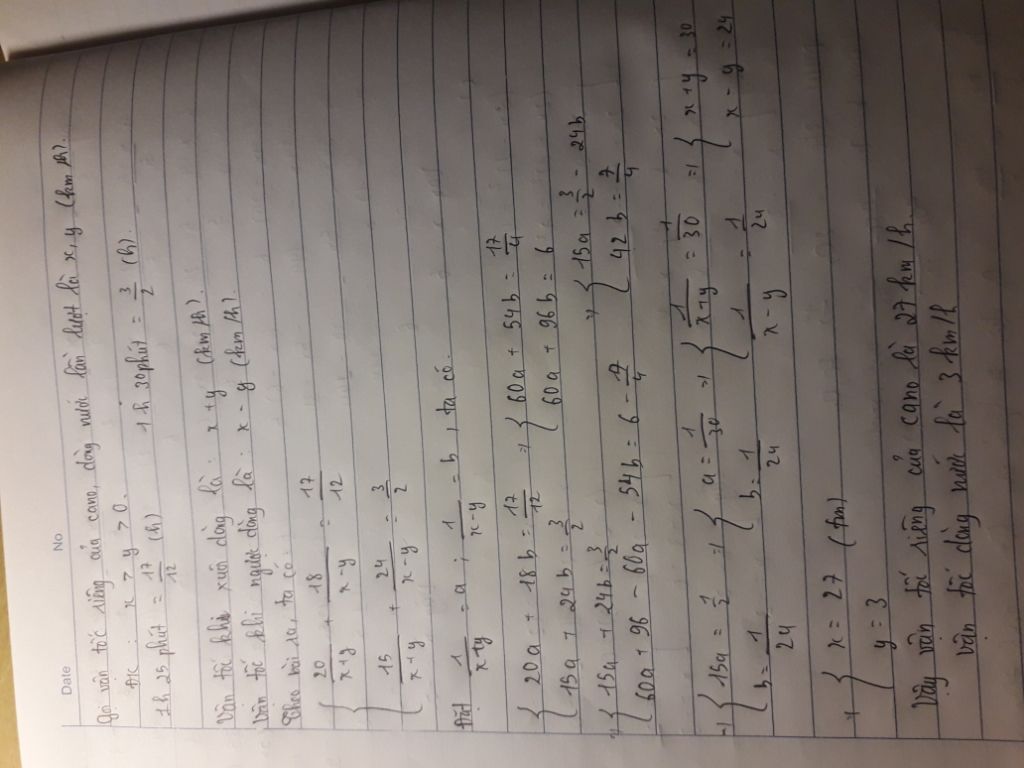 Date No
Gọi vận tốc riêng của cano, dòng nước lần lượt là x, y (km/h).
ĐK: x > y > 0.
1h 25 phút = 17/12 (h) 1h 30 phút = 3/2 (h).
Vận tốc khi xuôi dòng là: x + y (km/h).
Vận tốc khi ngược dòng là: x - y (km/h).
Theo bài ra, ta có:
{ 20/(x+y) + 18/(x-y) = 17/12
{ 15/(x+y) + 24/(x-y) = 3/2
Đặt 1/(x+y) = a ; 1/(x-y) = b, ta có.
{ 20a + 18b = 17/12 => { 60a + 54b = 17/4
{ 15a + 24b = 3/2 60a + 96b = 6
=> { 15a + 24b = 3/2 => { 15a = 3/2 - 24b
{ 60a + 96 - 60a - 54b = 6 - 17/4 { 42b = 7/4
=> { 15a = 1/2 => { a = 1/30 => { 1/(x+y) = 1/30 => { x + y = 30
{ b = 1/24 { b = 1/24 { 1/(x-y) = 1/24 { x - y = 24
=> { x = 27 (tm)
{ y = 3
Vậy vận tốc riêng của cano là 27 km/h
vận tốc dòng nước là 3 km/h